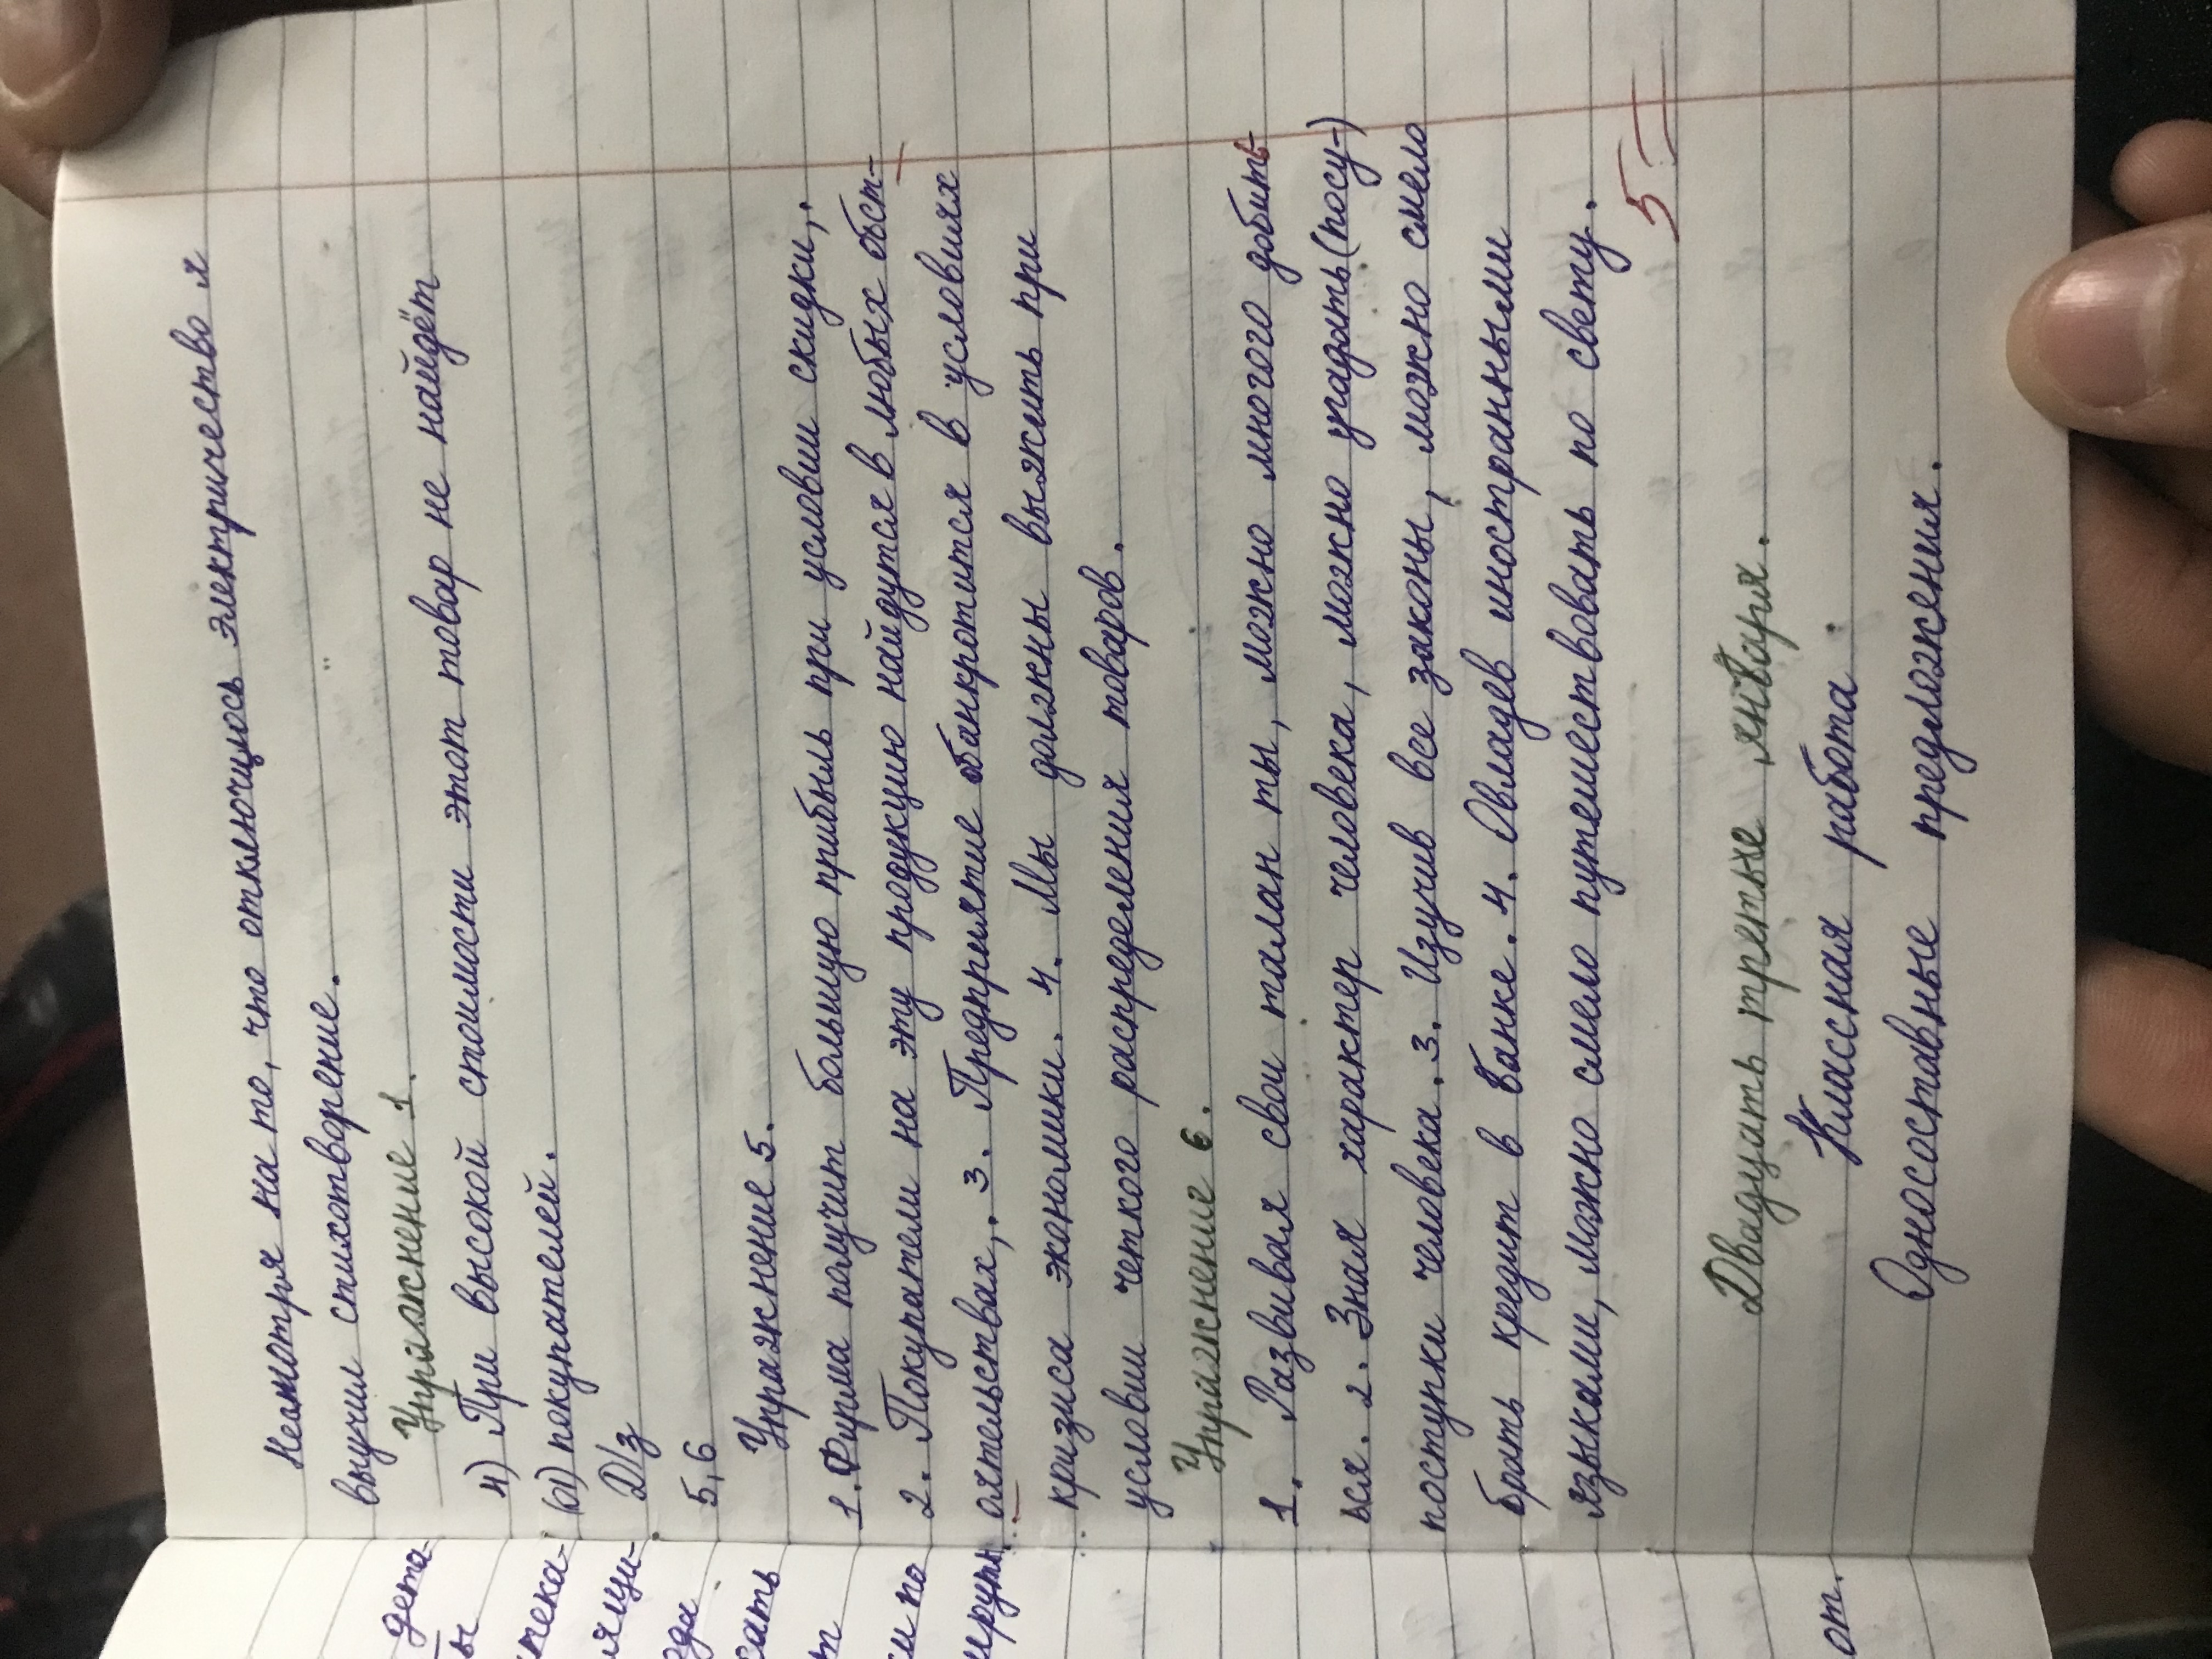 дета-
ы
тека-
ящи-
ода
сать
т
си по
ируть.
от.
Несмотря на то, что отключилось электричество я
выучил стихотворение.
Упражнение 1.
4) При высокой стоимости этот товар не найдёт
покупателей.
Д/з
5,6
Упражнение 5.
1. Фирма получит большую прибыль при условии скидки,.
2. Покупатели на эту продукцию найдутся в любых обст-
оятельствах,. 3. Предприятие обанкротится в условиях
кризиса экономики. 4. Мы должны выжить при
условии четкого распределения товаров.
Упражнение 6.
1. Развивая свои талан ты, можно многого добить-
ься. 2. Зная характер человека, можно угадать (посу-)
поступки человека. 3. Изучив все законы, можно смело
брать кредит в банке. 4. Овладев иностранными
языками, можно смело путешествовать по свету.
5=
Двадцать третье января.
Классная работа
Односоставные предложения.